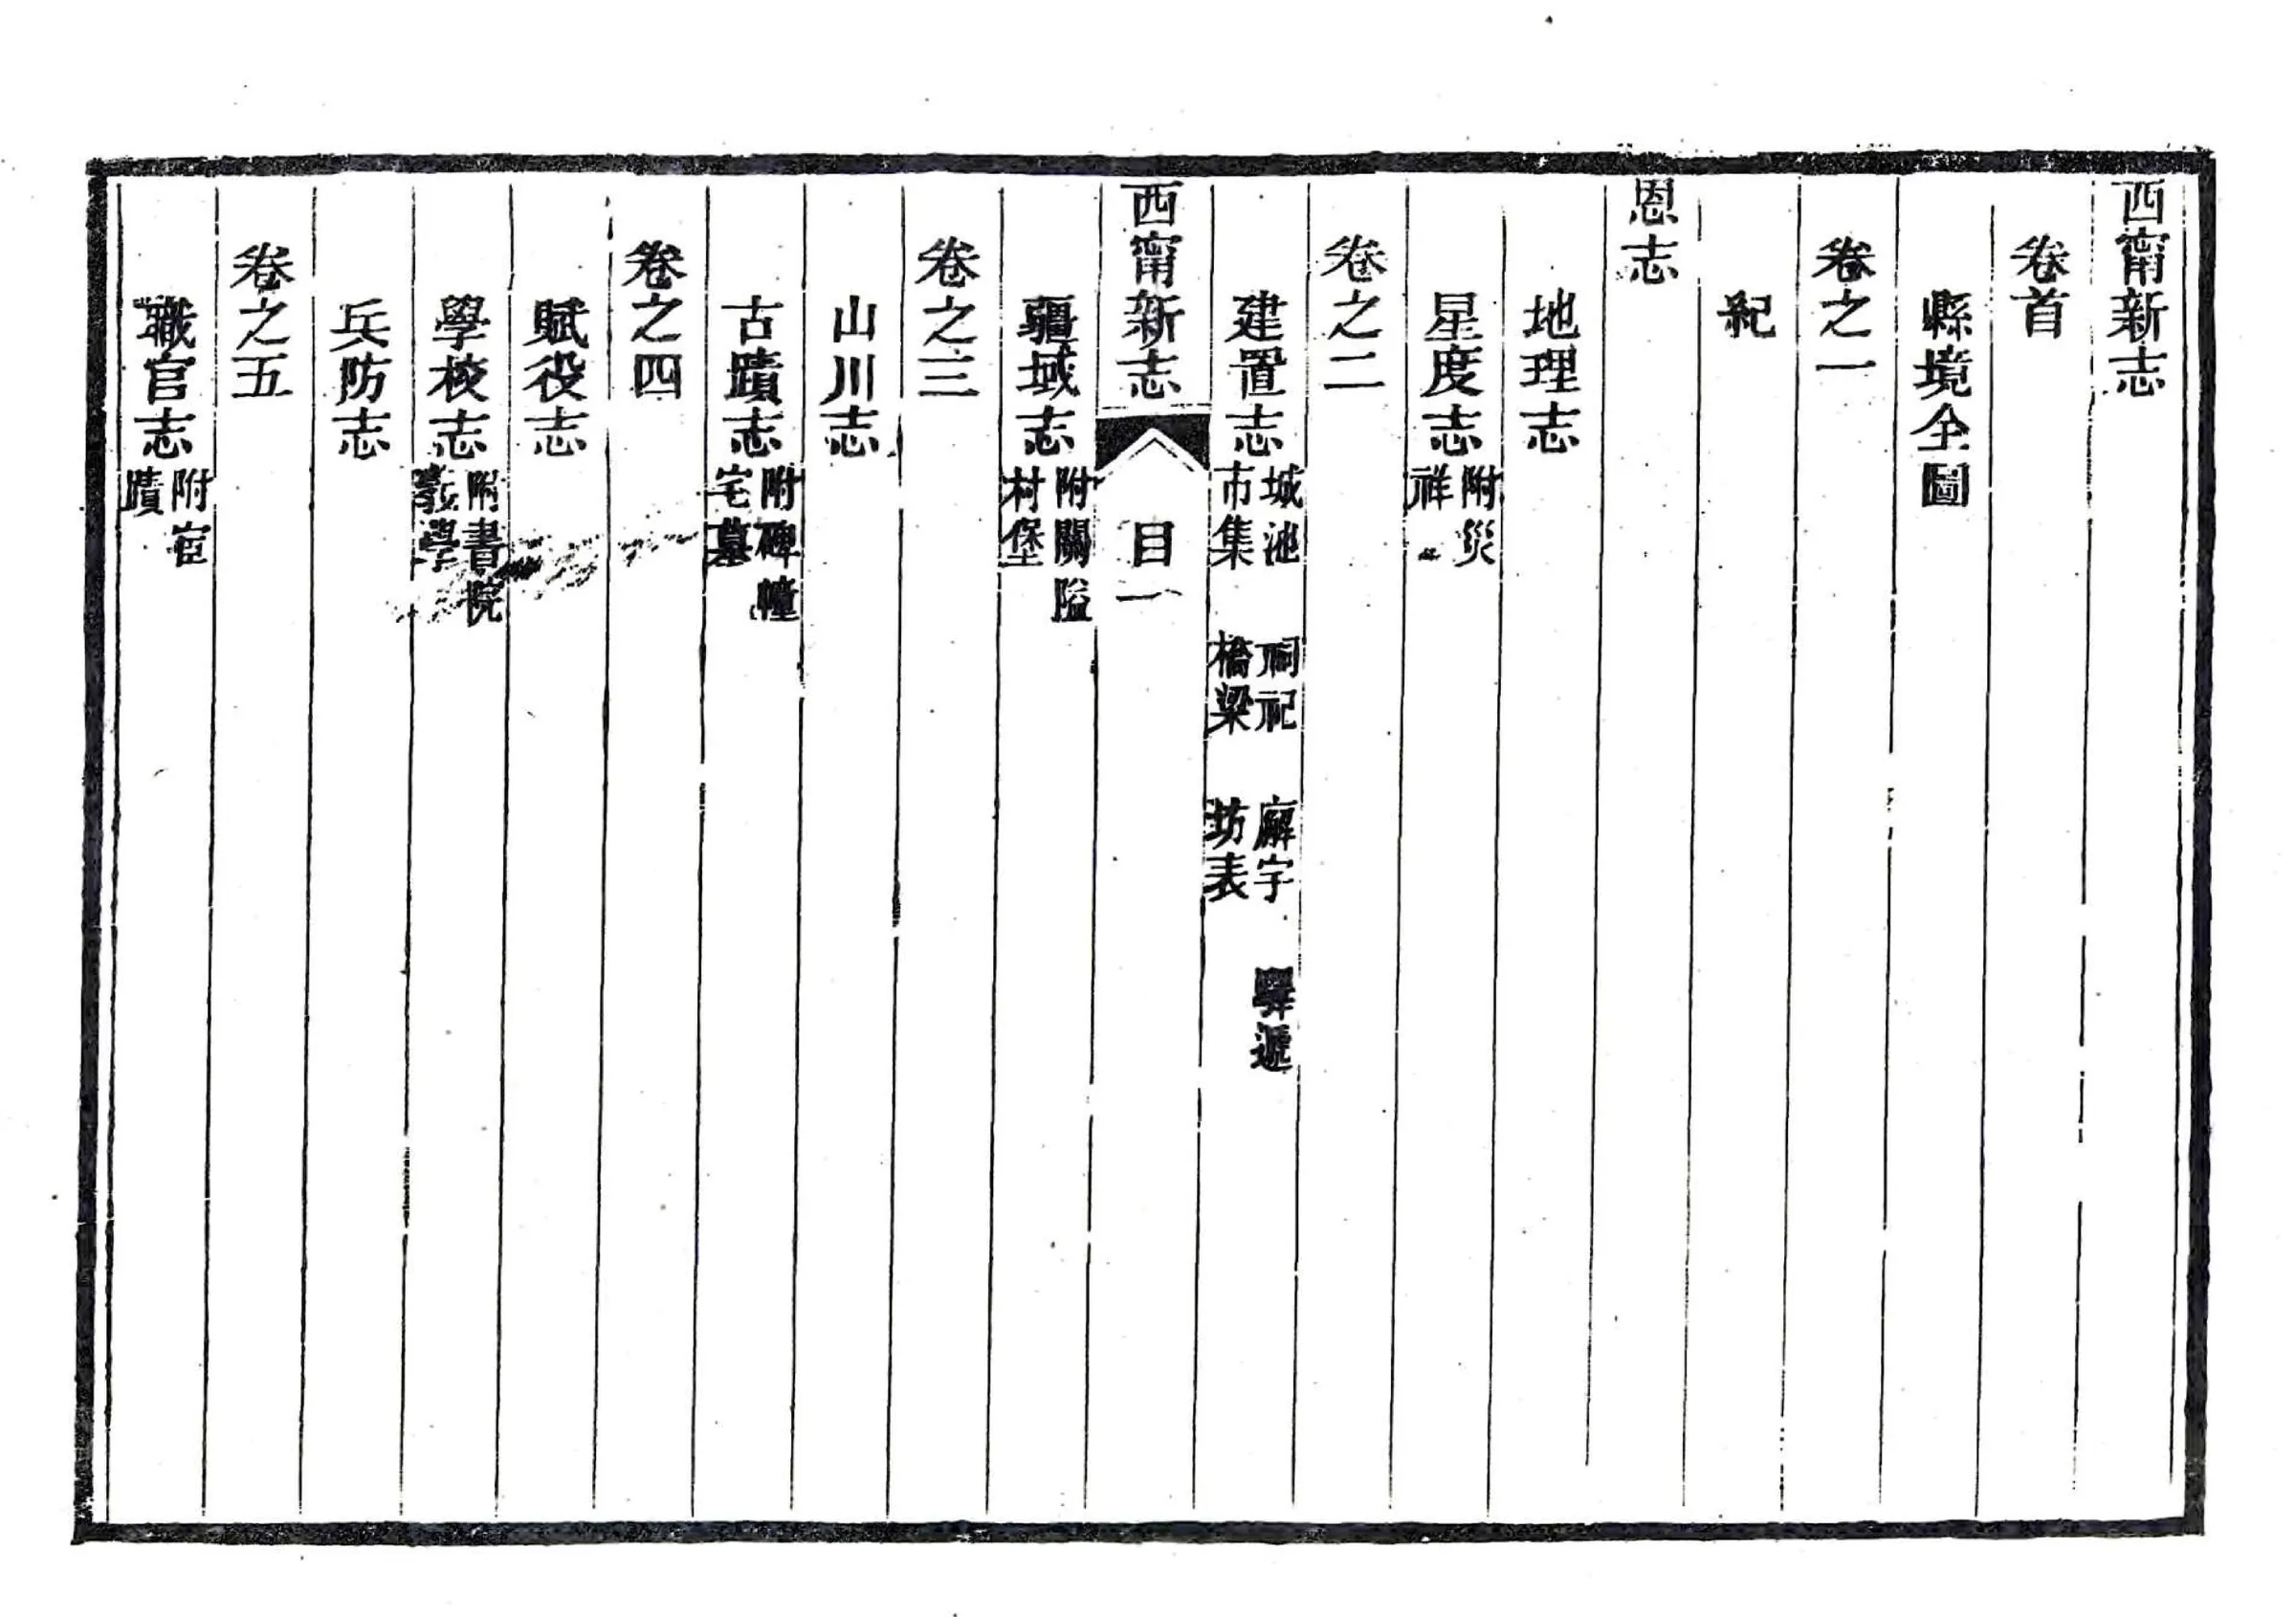 西甯新志
卷首
縣境全圖
卷之一
紀
恩志
地理志
星度志 附災祥
卷之二
建置志 城池 祠祀 廨宇 驛遞 市集 橋梁 坊表
西甯新志 目 一
疆域志 附關隘村堡
卷之三
山川志
古蹟志 附碑幢宅墓
卷之四
賦役志
學校志 附書院義學
兵防志
卷之五
職官志 附宦蹟